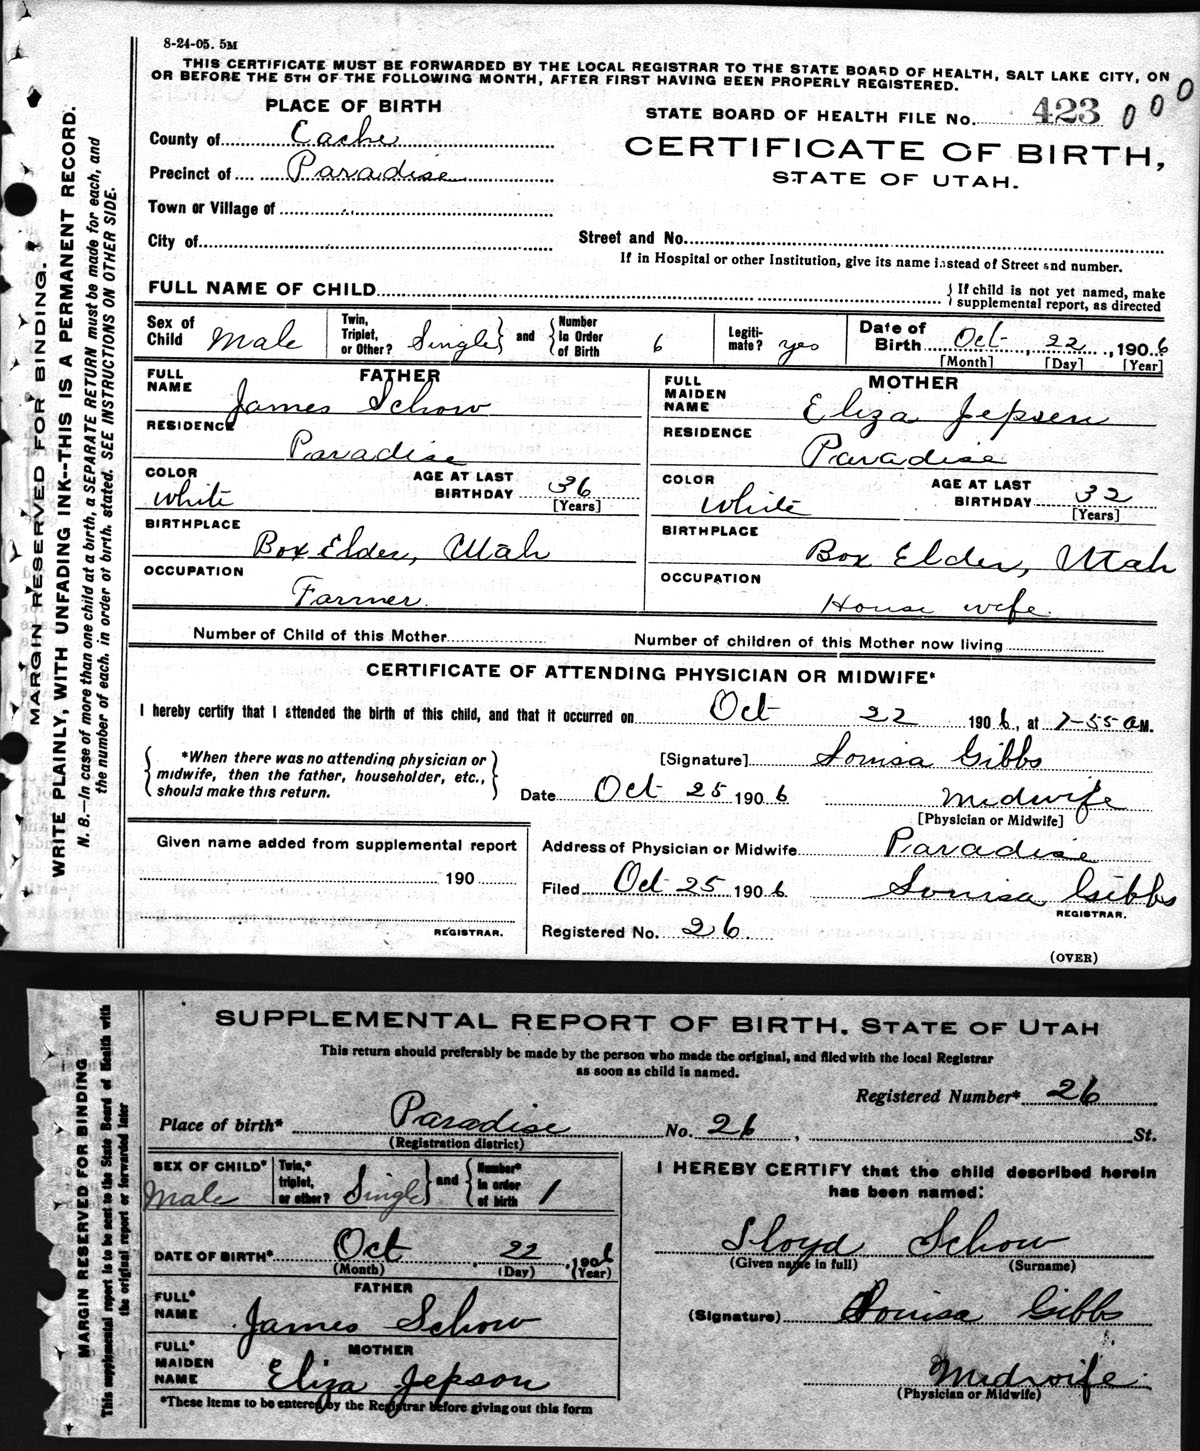 8-24-05. 5M
THIS CERTIFICATE MUST BE FORWARDED BY THE LOCAL REGISTRAR TO THE STATE BOARD OF HEALTH, SALT LAKE CITY, ON
OR BEFORE THE 5TH OF THE FOLLOWING MONTH, AFTER FIRST HAVING BEEN PROPERLY REGISTERED.
PLACE OF BIRTH
STATE BOARD OF HEALTH FILE No. 423 000
County of Cache
CERTIFICATE OF BIRTH,
Precinct of Paradise
STATE OF UTAH.
Town or Village of
City of
Street and No.
If in Hospital or other Institution, give its name instead of Street and number.
FULL NAME OF CHILD
{ If child is not yet named, make
supplemental report, as directed
Sex of Child Male
Twin, Triplet, or Other? Single } and { Number In Order of Birth 6
Legitimate? yes
Date of Birth Oct 22, 1906
[Month] [Day] [Year]
FATHER
FULL NAME James Schow
RESIDENCE Paradise
COLOR White
AGE AT LAST BIRTHDAY 36
[Years]
BIRTHPLACE Box Elder, Utah
OCCUPATION Farmer.
MOTHER
FULL MAIDEN NAME Eliza Jepsen
RESIDENCE Paradise
COLOR White
AGE AT LAST BIRTHDAY 32
[Years]
BIRTHPLACE Box Elder, Utah
OCCUPATION House wife.
Number of Child of this Mother
Number of children of this Mother now living
CERTIFICATE OF ATTENDING PHYSICIAN OR MIDWIFE*
I hereby certify that I attended the birth of this child, and that it occurred on Oct 22 1906, at 7-55 a M.
{ *When there was no attending physician or
midwife, then the father, householder, etc.,
should make this return. }
[Signature] Louisa Gibbs
Date Oct 25 1906 Midwife
[Physician or Midwife]
Given name added from supplemental report
190
REGISTRAR.
Address of Physician or Midwife Paradise
Filed Oct 25 1906 Louisa Gibbs
REGISTRAR.
Registered No. 26
(OVER)
MARGIN RESERVED FOR BINDING.
WRITE PLAINLY, WITH UNFADING INK--THIS IS A PERMANENT RECORD.
N. B.—In case of more than one child at a birth, a SEPARATE RETURN must be made for each, and
the number of each, in order of birth, stated. SEE INSTRUCTIONS ON OTHER SIDE.
SUPPLEMENTAL REPORT OF BIRTH. STATE OF UTAH
This return should preferably be made by the person who made the original, and filed with the local Registrar
as soon as child is named.
Registered Number* 26
Place of birth* Paradise No. 26, St.
(Registration district)
SEX OF CHILD* Male
Twin,* triplet, or other? Single } and { Number* In order of birth 1
DATE OF BIRTH* Oct 22, 1906
(Month) (Day) (Year)
FATHER
FULL* NAME James Schow
MOTHER
FULL* MAIDEN NAME Eliza Jepson
*These items to be entered by the Registrar before giving out this form
I HEREBY CERTIFY that the child described herein
has been named:
Lloyd Schow
(Given name in full) (Surname)
(Signature) Louisa Gibbs
Midwife.
(Physician or Midwife)
MARGIN RESERVED FOR BINDING
This supplemental report is to be sent to the State Board of Health with
the original report or forwarded later